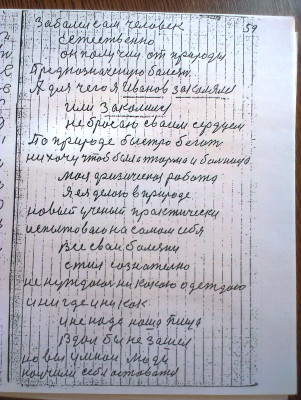 Заболел сам человек 59
естественно
он получил от природы
Предназначенную болезнь
А для чего я Иванов закалялся
или Закалился
не бросаю своим сердцем
По природе быстро бегать
ни хочу чтоб была тюрма и больница
моя физическая работа
Я ея делаю в природе
новый ученый практически
испытоваю на самом себя
Все свои болезни
стал сознателно
не нуждаюсь ни какою одеждаю
и нигде и никак
и не надо наша пища
в дом бы не зашел
новые умнои люди
научили себя оставати